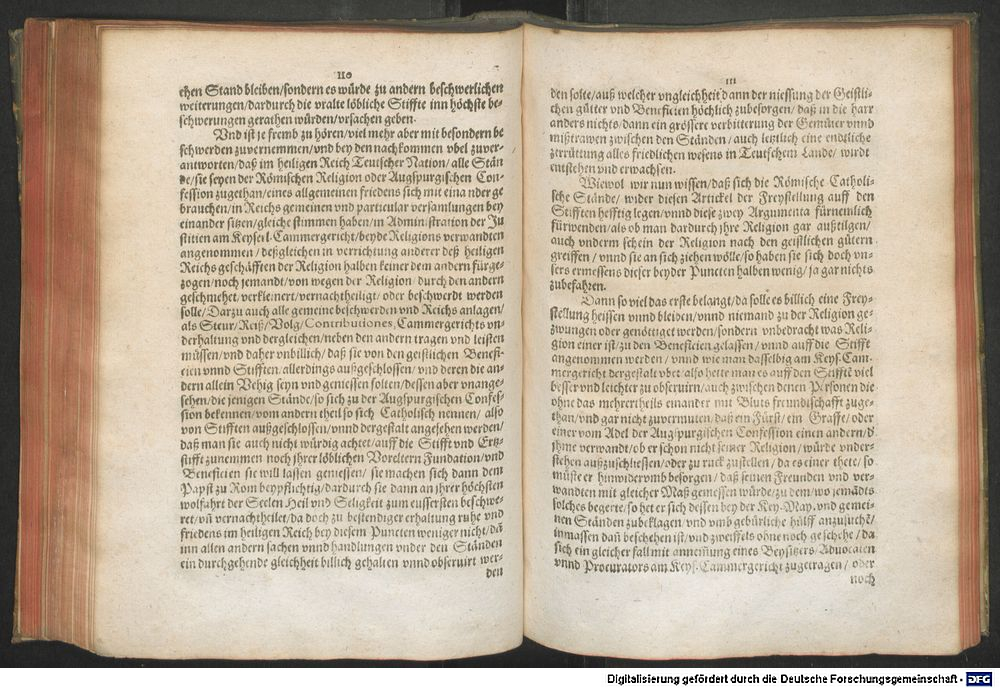 110
chen Stand bleiben/sondern es würde zu andern beschwerlichen
weiterungen/dardurch die vralte löbliche Stiffte inn höchste be-
schwerungen gerathen würden/vrsachen geben.
Vnd ist je fremb zu hören/viel mehr aber mit besondern be
schwerden zuvernemmen/vnd bey den nachkommen vbel zuver-
antworten/daß im heiligen Reich Teutscher Nation/alle Stän
de/sie seyen der Römischen Religion oder Augspurgischen Con-
fession zugethan/eines allgemeinen friedens sich mit einander ge
brauchen/in Reichs gemeinen vnd particular versamlungen bey
einander sitzen/gleiche stimmen haben/in Administration der Ju
stitien am Keyserl. Cammergericht/beyde Religions verwandten
angenommen/deßgleichen in verrichtung anderer deß heiligen
Reichs geschäfften der Religion halben keiner dem andern fürge-
zogen/noch jemandt/von wegen der Religion/durch den andern
geschmehet/verkleinert/vernachtheiligt/oder beschwerdt werden
solle/Darzu auch alle gemeine beschwerden vnd Reichs anlagen/
als Steur/Reiß/Volg/Contributiones, Cammergerichts vn-
derhaltung vnd dergleichen/neben den andern tragen vnd leisten
müssen/vnd daher vnbillich/daß sie von den geistlichen Benefi-
cien vnnd Stifften/allerdings außgeschlossen/vnd deren die an-
dern allein Vehig seyn vnd geniessen solten/dessen aber vnange-
sehen/die jenigen Stände/so sich zu der Augspurgischen Confes-
sion bekennen/vom andern theil so sich Catholisch nennen/also
von Stifften außgeschlossen/vnnd dergestalt angesehen werden/
daß man sie auch nicht würdig achtet/auff die Stifft vnd Ertz-
stifft zunemmen noch jhrer löblichen Voreltern Fundation/vnd
Beneficien sie will lassen geniessen/sie machen sich dann dem
Papst zu Rom beypflichtig/dardurch sie dann an jhrer höchsten
wolfahrt der Seelen Heil vnd Seligkeit zum eussersten beschwe-
ret/vñ vernachtheilet/da doch zu bestendiger erhaltung ruhe vnd
friedens im heiligen Reich bey diesem Puncten weniger nicht/dañ
inn allen andern sachen vnnd handlungen vnder den Ständen
ein durchgehende gleichheit billich gehalten vnnd observirt wer-
den
111
den solte/auß welcher vngleichheit dann der niessung der Geistli-
chen gütter vnd Beneficien höchlich zubesorgen/daß in die harr
anders nichts/dann ein grössere verbitterung der Gemüter vnnd
mißtrawen zwischen den Ständen/auch letzlich eine endtliche
zerrüttung alles friedlichen wesens in Teutschem Lande/wirdt
entstehen vnd erwachsen.
Wiewol wir nun wissen/daß sich die Römische Catholi-
sche Stände/wider diesen Artickel der Freystellung auff den
Stifften hefftig legen/vnnd diese zwey Argumenta fürnemlich
fürwenden/als ob man dardurch jhre Religion gar außtilgen/
auch vnderm schein der Religion nach den geistlichen gütern
greiffen/vnnd sie an sich ziehen wölle/so haben sie sich doch vn-
sers ermessens dieser beyder Puncten halben wenig/ja gar nichts
zubefahren.
Dann so viel das erste belangt/da solle es billich eine Frey-
stellung heissen vnnd bleiben/vnnd niemand zu der Religion ge-
zwungen oder genöttiget werden/sondern vnbedracht was Reli-
gion einer ist/zu den Beneficien gelassen/vnnd auff die Stifft
angenommen werden/vnnd wie man dasselbig am Keys. Cam-
mergericht dergestalt vbet/also hette man es auff den Stifftē viel
besser vnd leichter zu observirn/auch zwischen denen Personen die
ohne das mehrertheils einander mit Bluts freundtschafft zuge-
than/vnd gar nicht zuvermuten/daß ein Fürst/ein Graffe/oder
einer vom Adel der Augspurgischen Confession einen andern/d'
jhme verwandt/ob er schon nicht seiner Religion/würde vnder-
stehen außzuschliessen/oder zu ruck zustellen/da es einer thete/so
müste er hinwiderumb besorgen/daß seinen Freunden vnd ver-
wandten mit gleicher Maß gemessen würde/zu dem/wo jemādts
solches begerte/so het er sich dessen bey der Key. May. vnd gemei-
nen Ständen zubeklagen/vnd vmb gebürliche hülff anzusuchē/
inmassen dañ beschehen ist/vnd zweiffels ohne noch geschehe/da
sich ein gleicher fall mit annemūng eines Beysitzers/Advocaten
vnnd Procurators am Keys. Cammergericht zugetragen/oder
noch
Digitalisierung gefördert durch die Deutsche Forschungsgemeinschaft - DFG